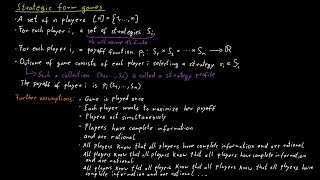 Strategic form games
• A set of n players [n] = {1,...,n}
• For each player i, a set of strategies Si.
We will assume it's finite
• For each player i, a payoff function pi: S1 × S2 × ... × Sn → ℝ
• Outcome of game consists of each player i selecting a strategy si ∈ Si
↳ Such a collection (s1,...,sn) is called a strategy profile
The payoff of player i is pi(s1,...,sn)
Further assumptions:
• Game is played once
• Each player wants to maximize her payoff
• Players act simultaneously
• Players have complete information
and are rational
• All players know that all players have complete information and are rational
• All players know that all players know that all players have complete information
and are rational
• All players know that all players know that all players know that all players have
complete information and are rational ...